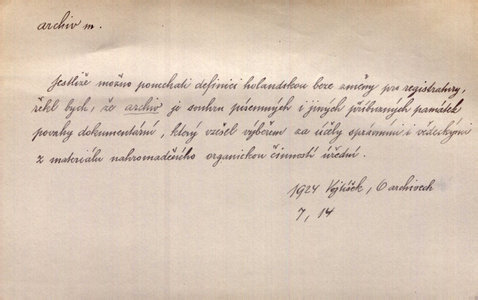 archiv m.
Jestliže možno ponechati definici holandskou beze změny pro registratury,
řekl bych, že archiv je souhrn písemných i jiných příbuzných památek
povahy dokumentární, který vzešel výběrem za účely správními i vědeckými
z materiálu nahromaděného organickou činností úřední.
1924 Vojtíšek, O archivech
7, 14